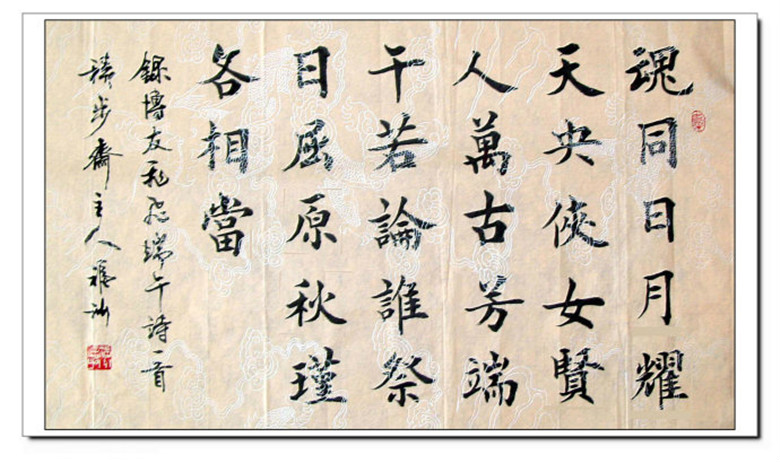 魂同日月耀
天央俠女賢
人萬古芳端
午若論誰祭
日屈原秋瑾
各相當
錄博友飛飛端午詩一首
積步齋主人